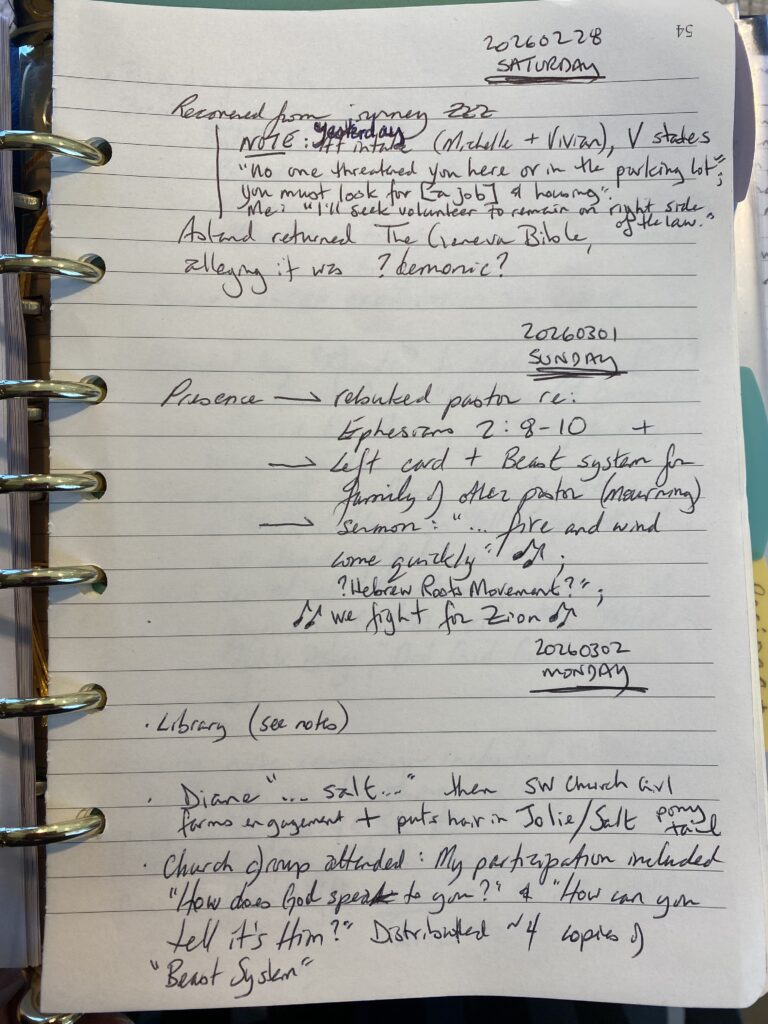 54
20260228
SATURDAY
Recovered from journey ZZZ
yesterday
NOTE: At intake (Michelle + Vivian), V states
"No one threatened you here or in the parking lot";
you must look for [a job] & housing".
Me: "I'll seek volunteer to remain on right side
of the law."
returned The Geneva Bible,
alleging it was ?demonic?
20260301
SUNDAY
Presence → rebuked pastor re:
Ephesians 2:8-10 +
→ Left card + Beast system for
family of other pastor (mourning)
→ sermon: "... fire and wind
come quickly" ♫;
?Hebrew Roots Movement?";
♫ we fight for Zion ♫
20260302
MONDAY
· Library (see notes)
· Diane "... salt..." then SW Church Girl
farms engagement + puts hair in Jolie/Salt pony
tail
· Church group attended: My participation included
"How does God speak to you?" & "How can you
tell it's Him?" Distributed ~4 copies of
"Beast System"